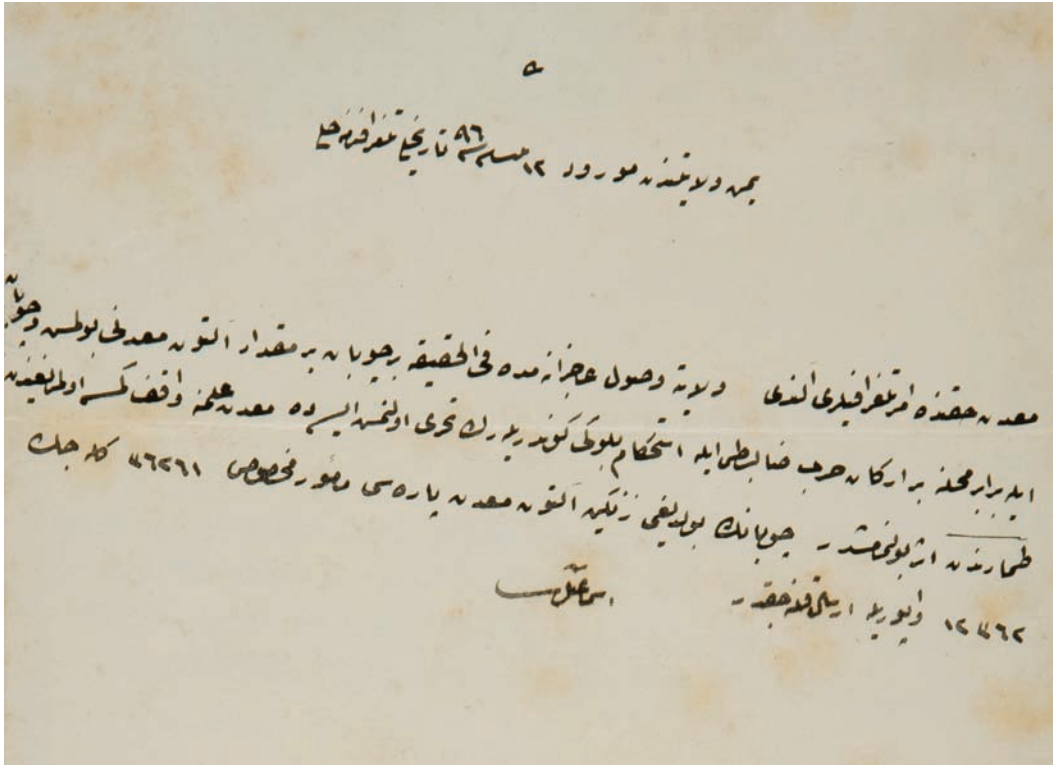 یمن ولایتندن مورود ١٢ سنه ٩٦ تاریخلی تلغرافنامه حلی
معدن حقنده امر تلغرافیلری آلندی ولایته وصول عاجزانه مده فی الحقیقه بر چوبان بر مقدار آلتون معدنی بولمش و چوبان
ایله برابر محلنه بر ارکان حرب ضابطی ایله استحکام بلوکی کوندریله رك تحری اولنمش ایسه ده معدن علمنه واقف کمسه اولمدیغندن
طمارندن اثر بولنمامشدر چوبانك بولدیغی زنکین آلتون معدن پاره سی مأمور مخصوص ٣٦٢٦١ کله جك
١٢٣٦٢ واپوریله ارسال قلنه جقدر اسماعیل